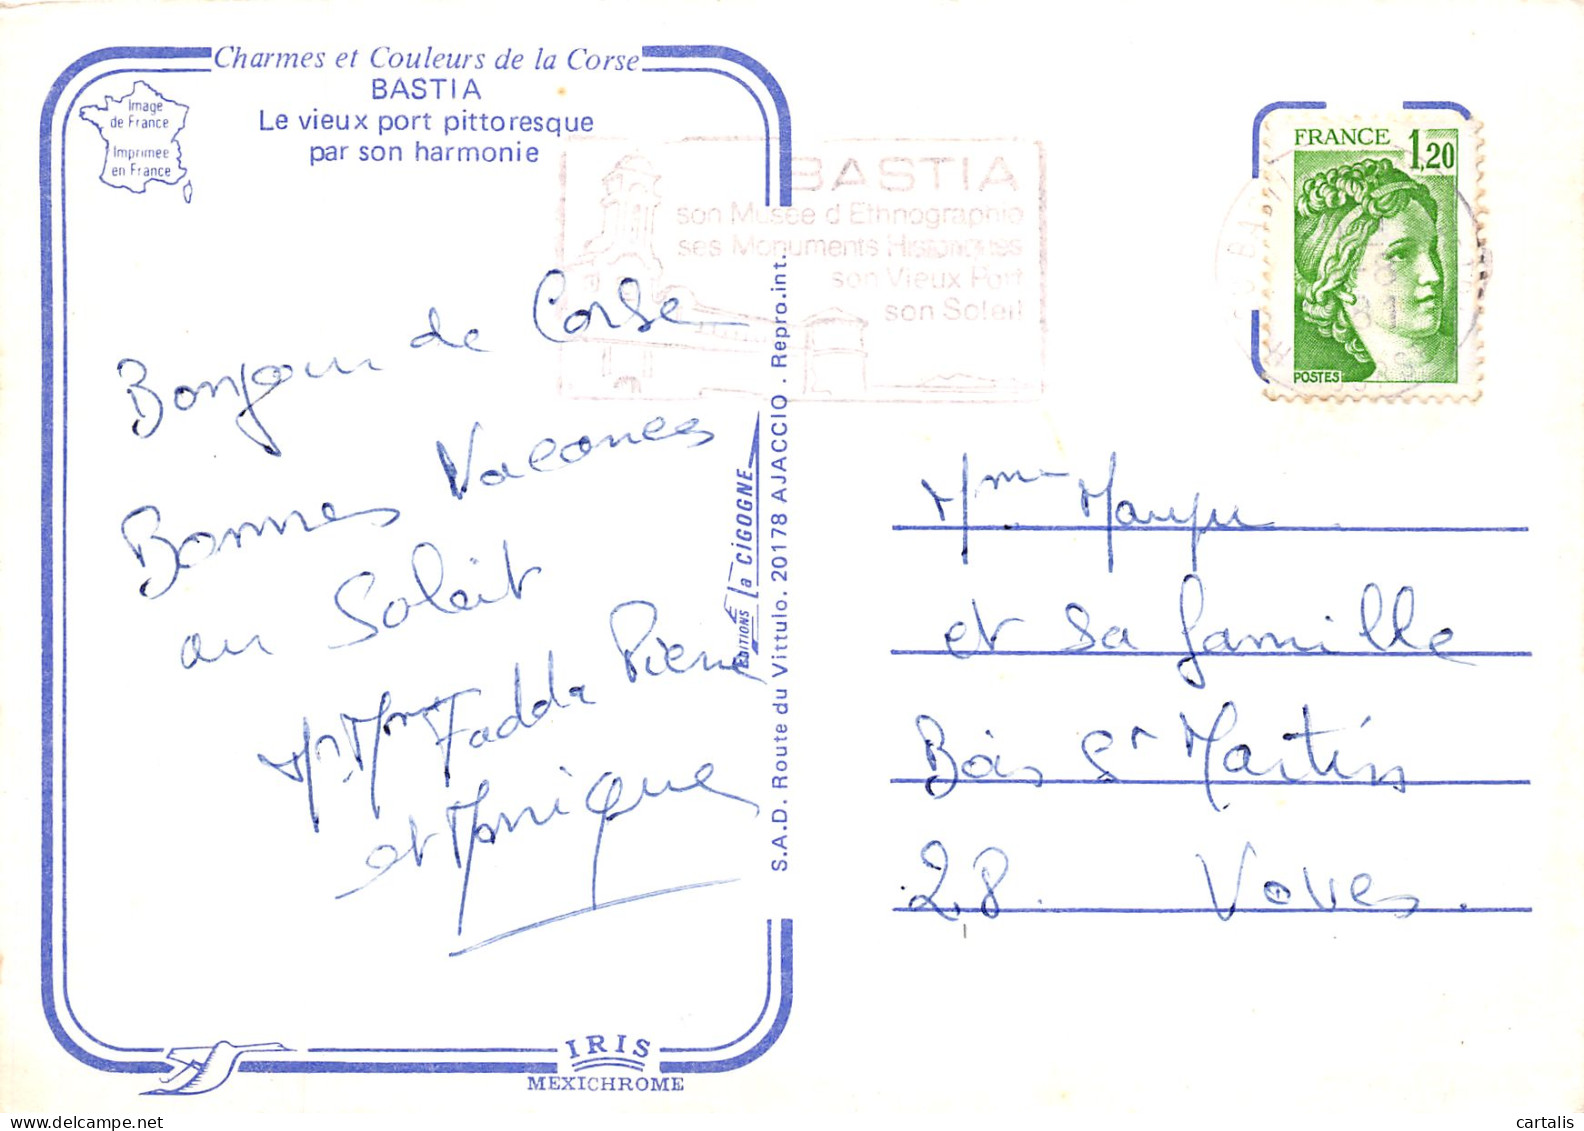 Charmes et Couleurs de la Corse
BASTIA
Le vieux port pittoresque
par son harmonie
Image
de France
Imprimée
en France
BASTIA
son Musée d'Ethnographie
ses Monuments Historiques
son Vieux Port
son Soleil
FRANCE 1,20
POSTES
Bonjour de Corse
Bonnes Vacances
au Soleil
Mr. Mme Fadda Pierre
et Monique
EDITIONS La CIGOGNE
S.A.D. Route du Vittulo. 20178 AJACCIO . Repro.int.
Mme
et sa famille
Bois St Martin
28. Voves.
IRIS
MEXICHROME
cartalis